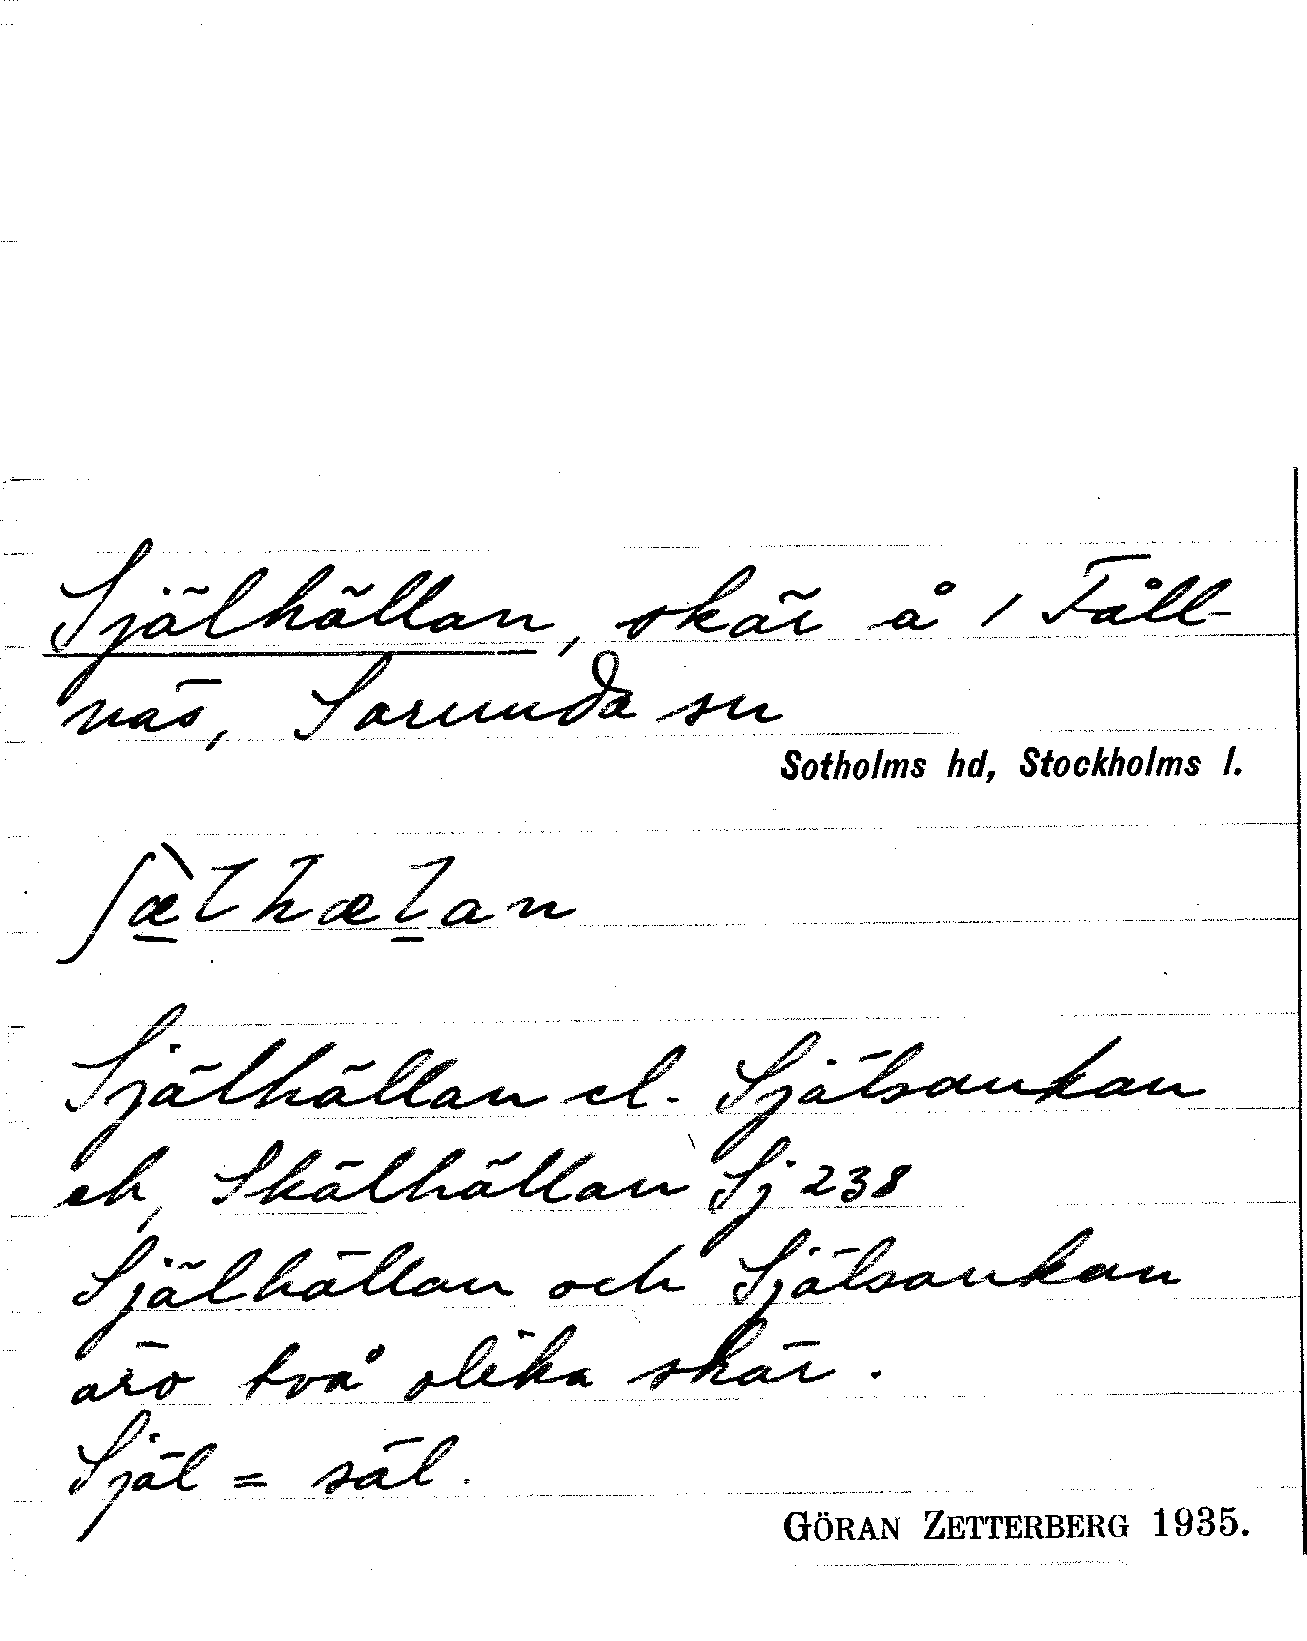 Själhällan, skär å 1 Fåll-
näs, Sorunda sn
Sotholms hd, Stockholms l.
ʃæ̀lhælan
Själhällan el. Själsankan
ek, Skälhällan Sj 238
Själhällan och Själsankan
äro två olika skär.
Själ = säl.
GÖRAN ZETTERBERG 1935.